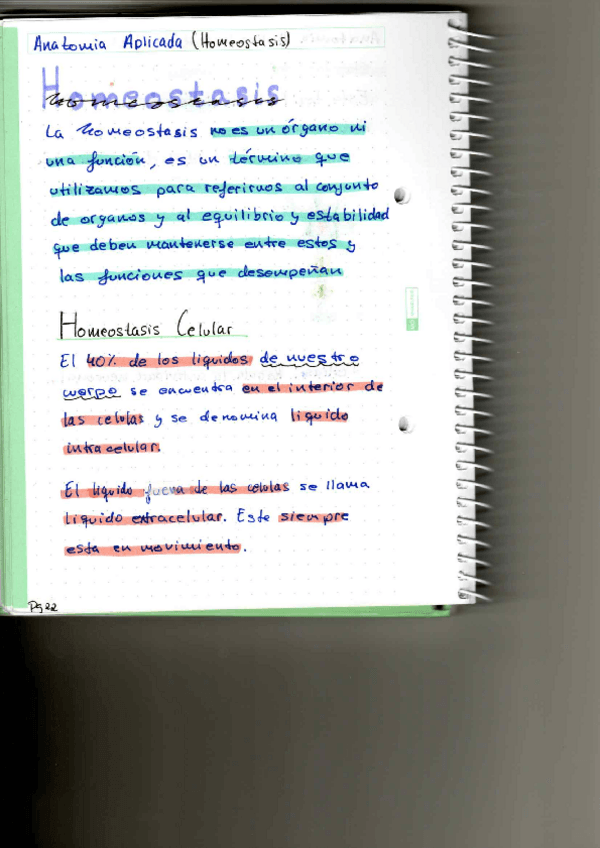 Anatomia Aplicada (Homeostasis)
Homeostasis
Homeostasis
La Homeostasis no es un órgano ni
una función, es un término que
utilizamos para referirnos al conjunto
de organos y al equilibrio y estabilidad
que deben mantenerse entre estos y
las funciones que desempeñan
Homeostasis Celular
El 40% de los liquidos de nuestro
cuerpo se encuentra en el interior de
las celulas y se denomina liquido
intracelular.
El liquido fuera de las celolas se llama
liquido extracelular. Este siempre
esta en movimiento.
Pg 22